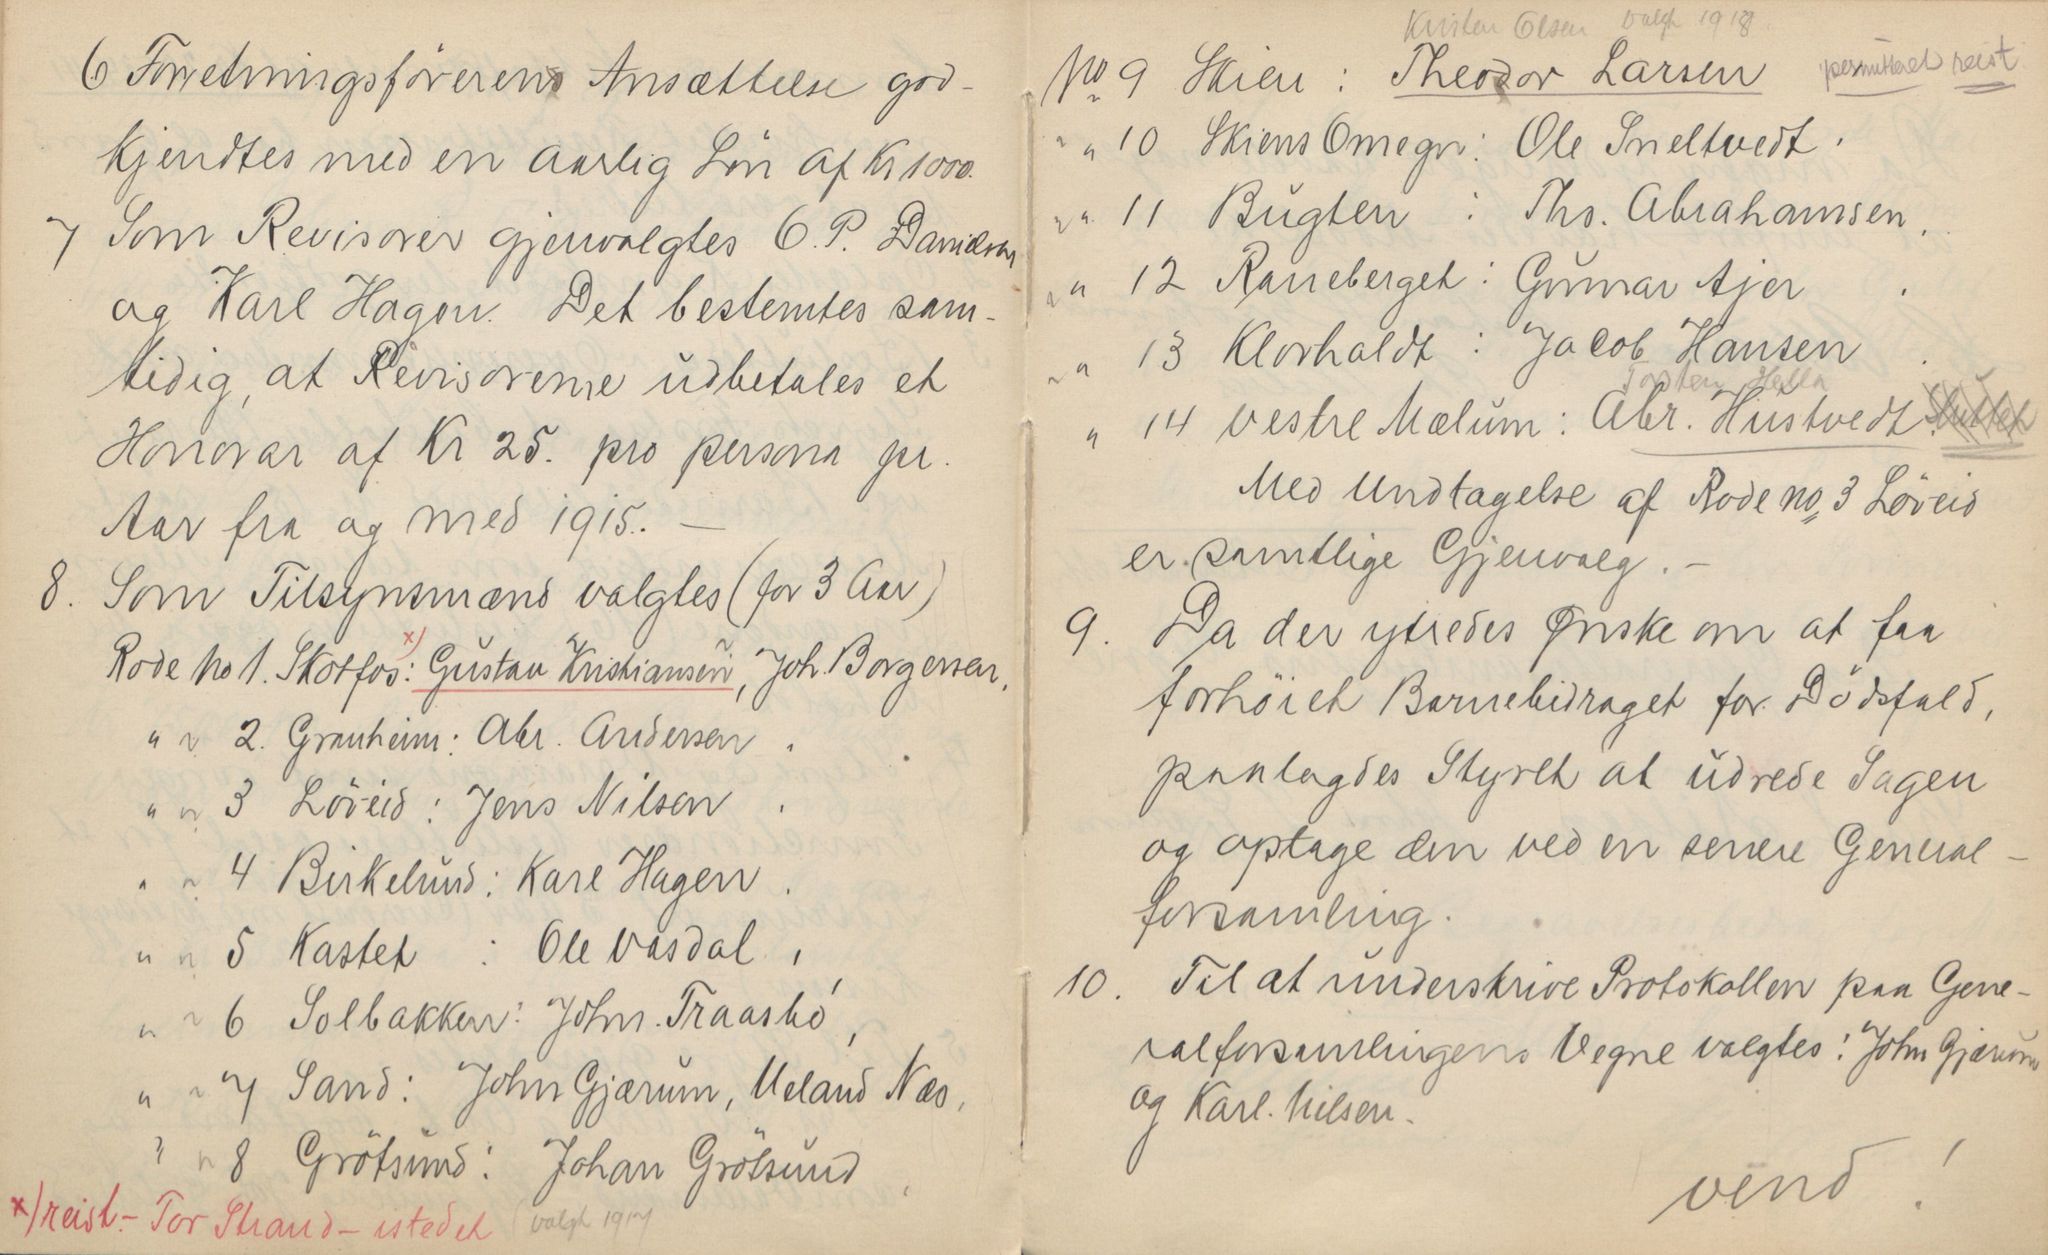 6 Forretningsförerens Ansættelse god-
kjendtes med en aarlig Lön af Kr 1000.
7 Som Revisorer gjenvalgtes O. P. Danielsen
og Karl Hagen. Det bestemtes sam-
tidig, at Revisorerne udbetales et
Honorar af Kr 25. pro persona pr.
Aar fra og med 1915. —
8. Som Tilsynsmænd valgtes (for 3 Aar)
Rode No 1. Skotfos: x) Gustav Kristiansen, Joh. Borgersen.
" " 2. Granheim: Abr. Andersen.
" " 3 Löveid: Jens Nilsen.
" " 4 Birkelund: Karl Hagen.
" " 5 Kastet : Ole Vasdal,
" " 6 Solbakken: John. Traasbö,
" " 7 Sand: John Gjærum, Meland Næs,
" " 8 Grötsund: Johan Grötsund,
x) reist - Tor Strand - istedet (valgt 1917
Kristen Olsen valgt 1918.
No 9 Skien: Theodor Larsen permitteret reist
" " 10 Skiens Omegn: Ole Sneltvedt.
" " 11 Bugten : Ths. Abrahamsen.
" " 12 Raneberget: Gunnar Ajer.
" " 13 Klovholdt: Jacob Hansen.
Torsten Hella
" 14 Vestre Mælum: Abr. Hustvedt. sluttet
Med Undtagelse af Rode no. 3 Löveid
er samtlige Gjenvalg. -
9. Da der ytredes Ønske om at faa
forhöiet Barnebidraget for Dödsfald,
paalagdes Styret at udrede Sagen
og optage den ved en senere General-
forsamling.
10. Til at underskrive Protokollen paa Gene-
ralforsamlingens Vegne valgtes: John Gjærum
og Karl. Nilsen.
vend!